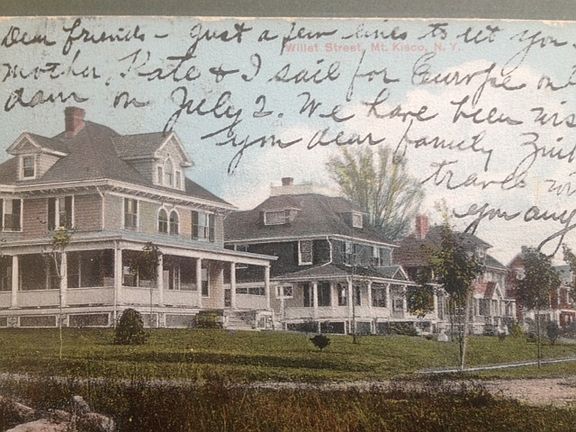 Dear friends – Just a few lines to let you
Willet Street, Mt. Kisco, N. Y.
mother, Kate & I sail for Europe on
dam on July 2. We have been
you dear family
travels
you